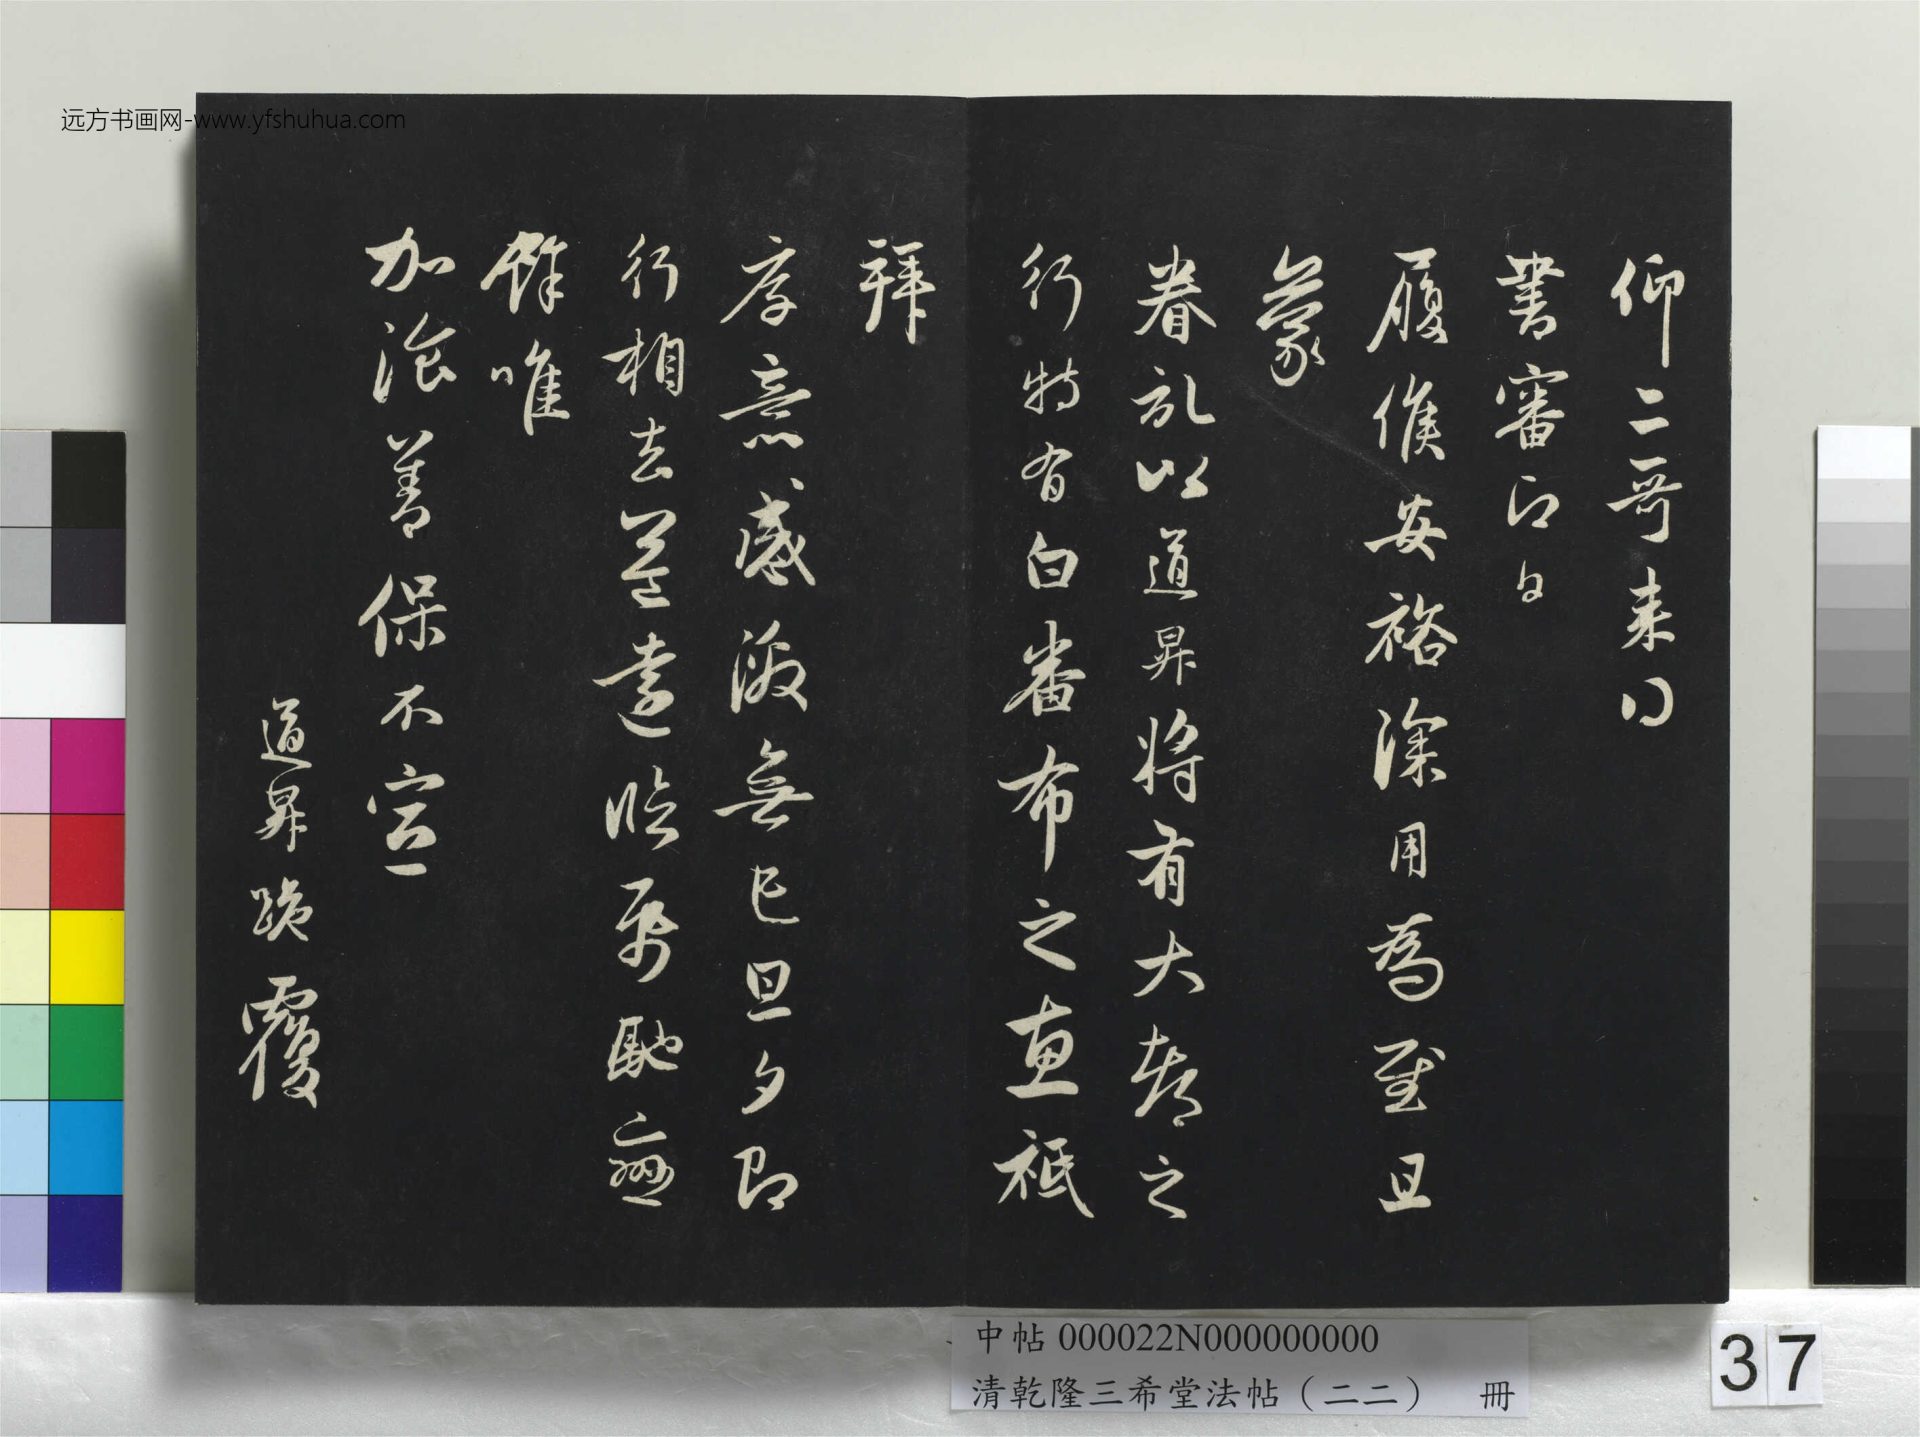 远方书画网-www.yfshuhua.com
仰二哥来
書審即日
履候安裕深用為慰且
蒙
眷以道昇将有大都之
行特有白番布之惠祗
拜
厚意感激無已旦夕即
行相去益遠臨帋馳戀
餘唯
加飡善保不宣
道昇跪覆
中帖 000022N000000000
清乾隆三希堂法帖（二二） 冊
37